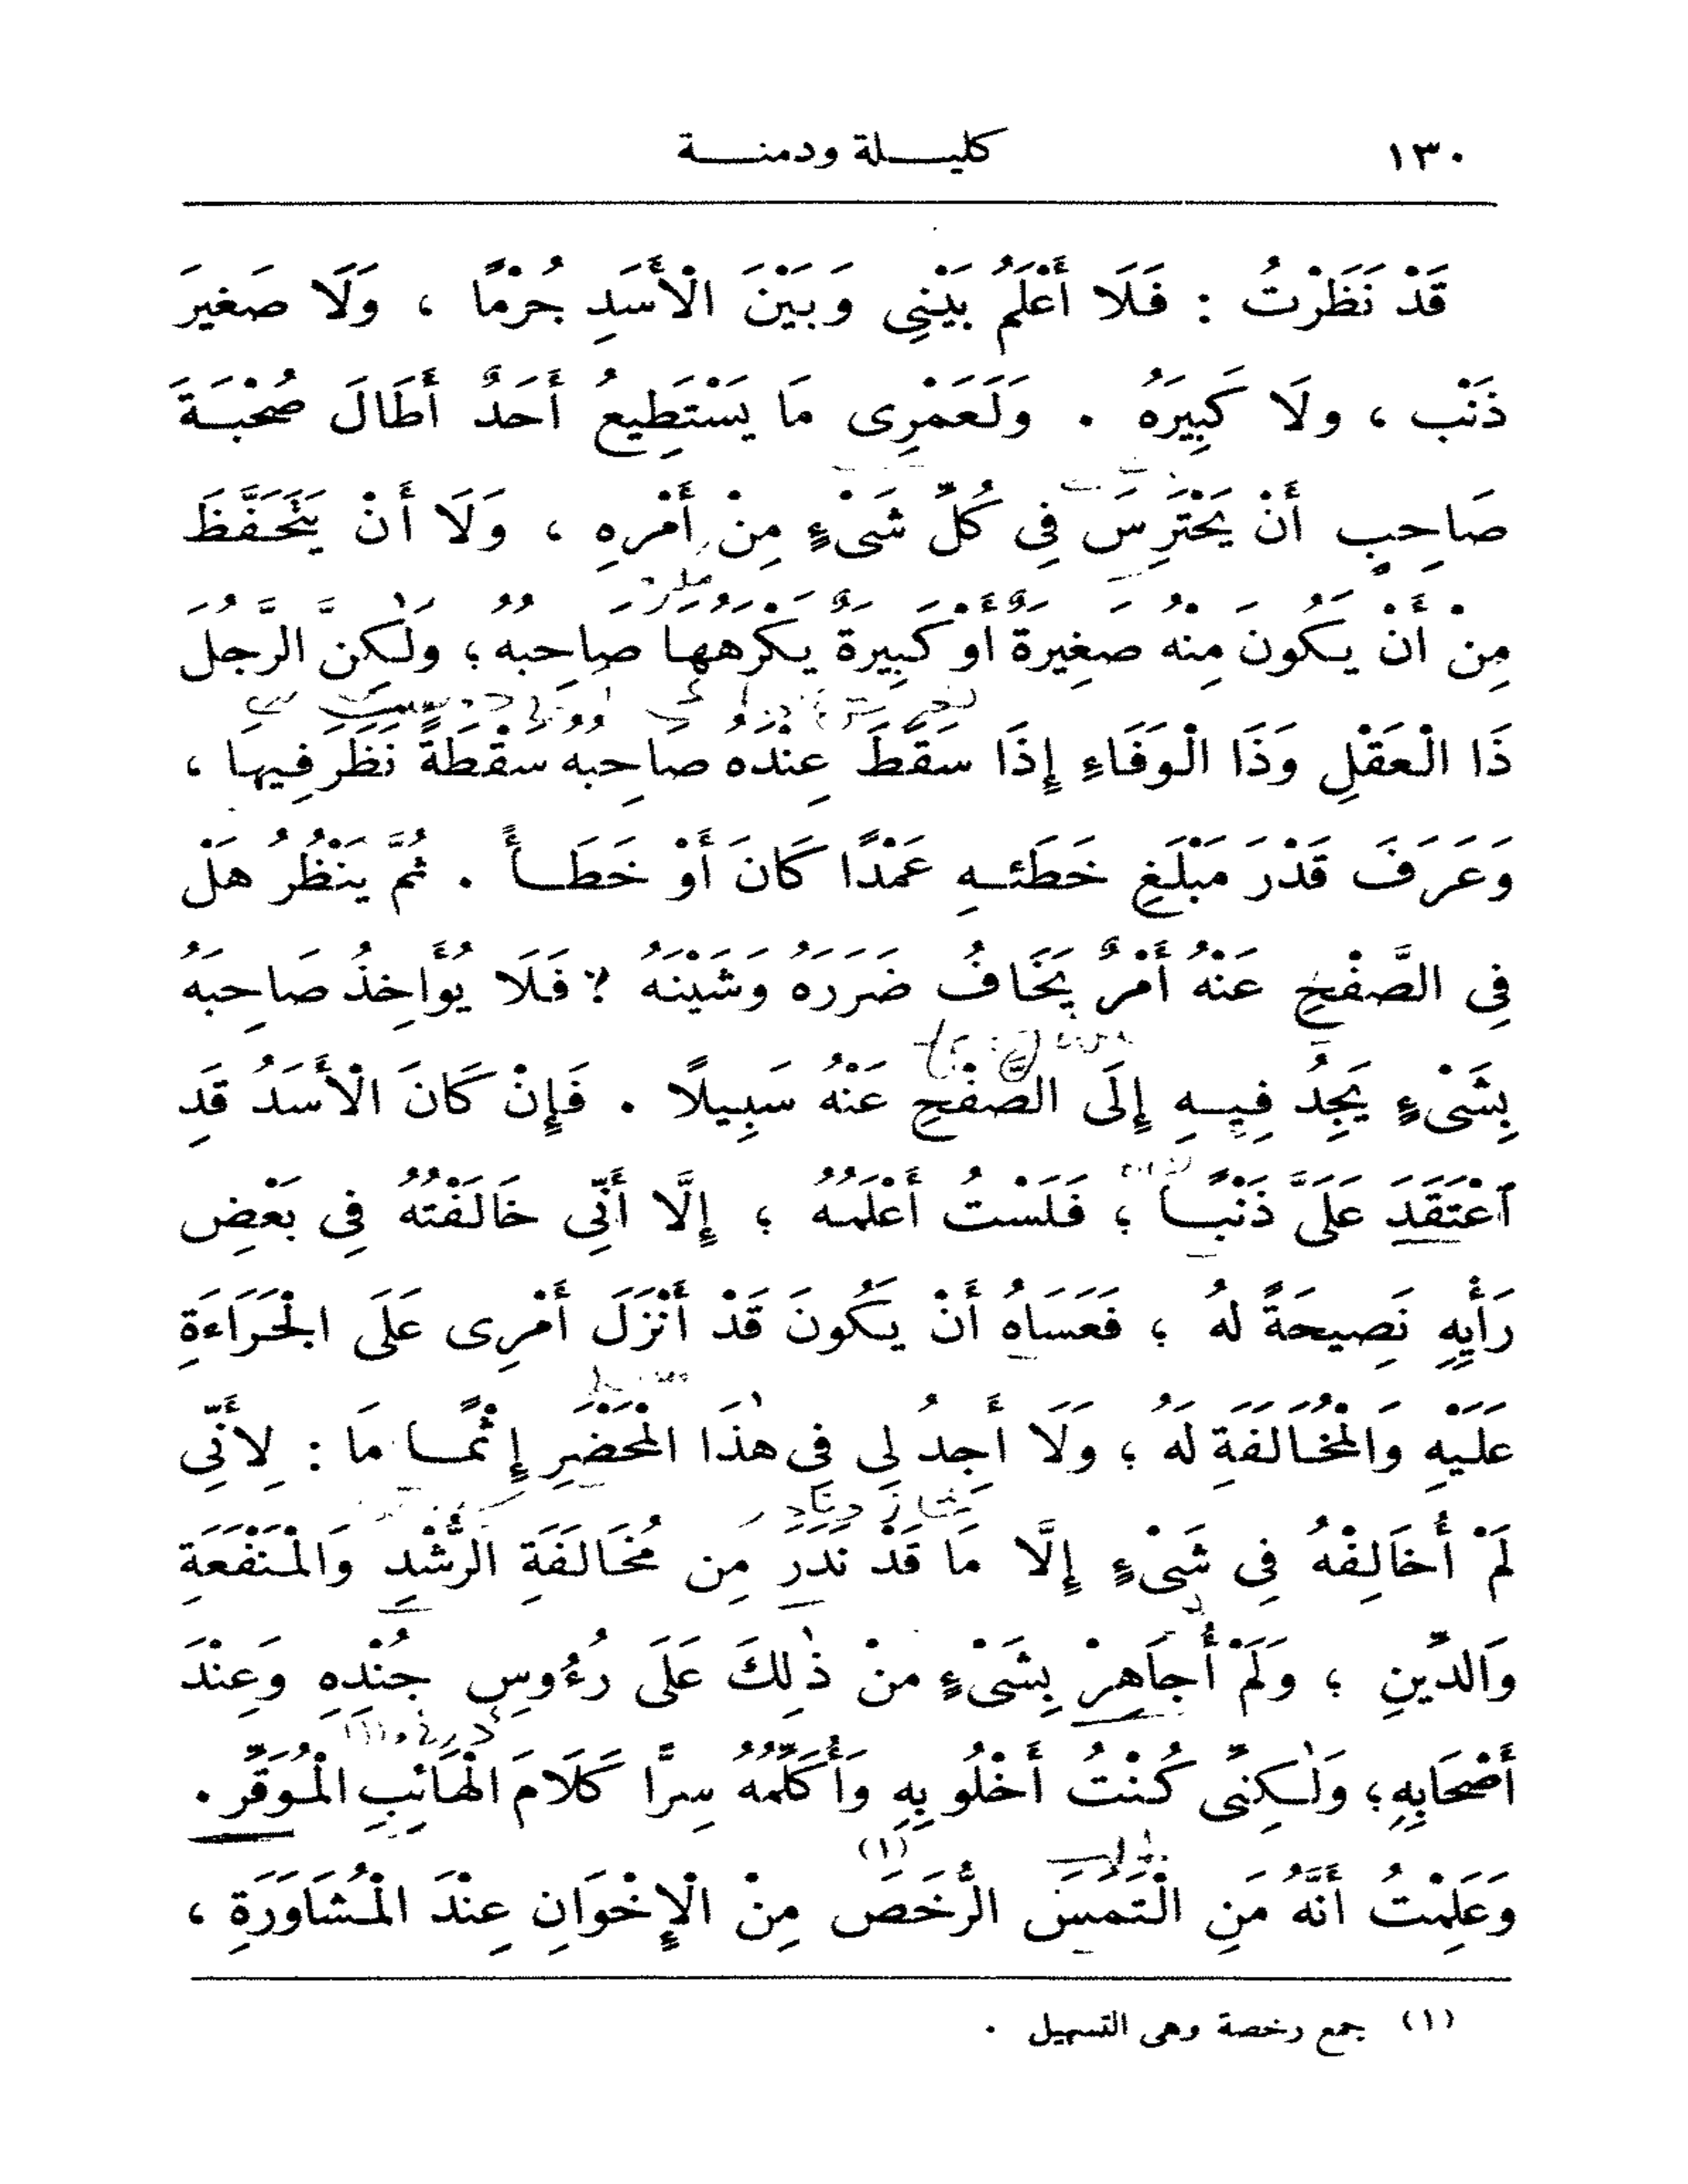 ١٣٠ كليلة ودمنة
قَدْ نَظَرْتُ : فَلَا أَعْلَمُ بَيْنِى وَبَيْنَ الْأَسَدِ جُرْمًا ، وَلَا صَغيرَ
ذَنْب ، ولَا كَبِيرَهُ . وَلَعَمْرِى مَا يَسْتَطِيعُ أَحَدٌ أَطَالَ صُحْبَةَ
صَاحِبٍ أَنْ يَحْتَرِسَ فِى كُلِّ شَىْءٍ مِنْ أَمْرهِ ، وَلَا أَنْ يَتَحَفَّظَ
مِنْ أَنْ يَكُونَ مِنْهُ صَغِيرَةٌ أَوْ كَبِيرَةٌ يَكْرَهُهَا صَاحِبُهُ ؛ ولٰكِنَّ الرَّجُلَ
ذَا الْعَقْلِ وَذَا الْوَفَاءِ إِذَا سَقَطَ عِنْدَهُ صَاحِبُهُ سَقْطَةً نَظَرَ فِيهَا ،
وَعَرَفَ قَدْرَ مَبْلَغِ خَطَئهِ عَمْدًا كَانَ أَوْ خَطَأً . ثُمَّ يَنْظُرُ هَلْ
فِى الصَّفْحِ عَنْهُ أَمْرٌ يَخَافُ ضَرَرَهُ وَشَيْنَهُ ؟ فَلَا يُؤَاخِذُ صَاحِبَهُ
بِشَىْءٍ يَجِدُ فِيهِ إِلَى الصَّفْحِ عَنْهُ سَبِيلًا . فَإِنْ كَانَ الْأَسَدُ قَدِ
ٱعْتَقَدَ عَلَىَّ ذَنْبًا ؛ فَلَسْتُ أَعْلَمُهُ ؛ إِلَّا أَنِّى خَالَفْتُهُ فِى بَعْضِ
رَأْيِهِ نَصِيحَةً لهُ ؛ فَعَسَاهُ أَنْ يَكُونَ قَدْ أَنْزَلَ أَمْرِى عَلَى الْجَرَاءَةِ
عَلَيْهِ وَالْمُخَالَفَةِ لَهُ ؛ وَلَا أَجِدُ لِى فِى هٰذَا الْمَحْضَرِ إِثْمًا مَا : لِأَنِّى
لَمْ أُخَالِفْهُ فِى شَىْءٍ إِلَّا مَا قَدْ نَدَرَ مِن مُخَالَفَةِ الرُّشْدِ وَالْمَنْفَعَةِ
وَالدِّينِ ؛ وَلَمْ أُجَاهِرْ بِشَىْءٍ منْ ذٰلِكَ عَلَى رُءُوسِ جُنْدِهِ وَعِنْدَ
أَصْحَابِهِ ؛ وَلٰكِنِّى كُنْتُ أَخْلُو بِهِ وَأُكَلِّمُهُ سِرًّا كَلَامَ الْهَائِبِ الْمُوَقِّرِ .
وَعَلِمْتُ أَنَّهُ مَنِ الْتَمَسَ الرُّخَصَ (١) مِنْ الْإِخْوَانِ عِنْدَ الْمُشَاوَرَةِ ،
(١) جمع رخصة وهى التسهيل .